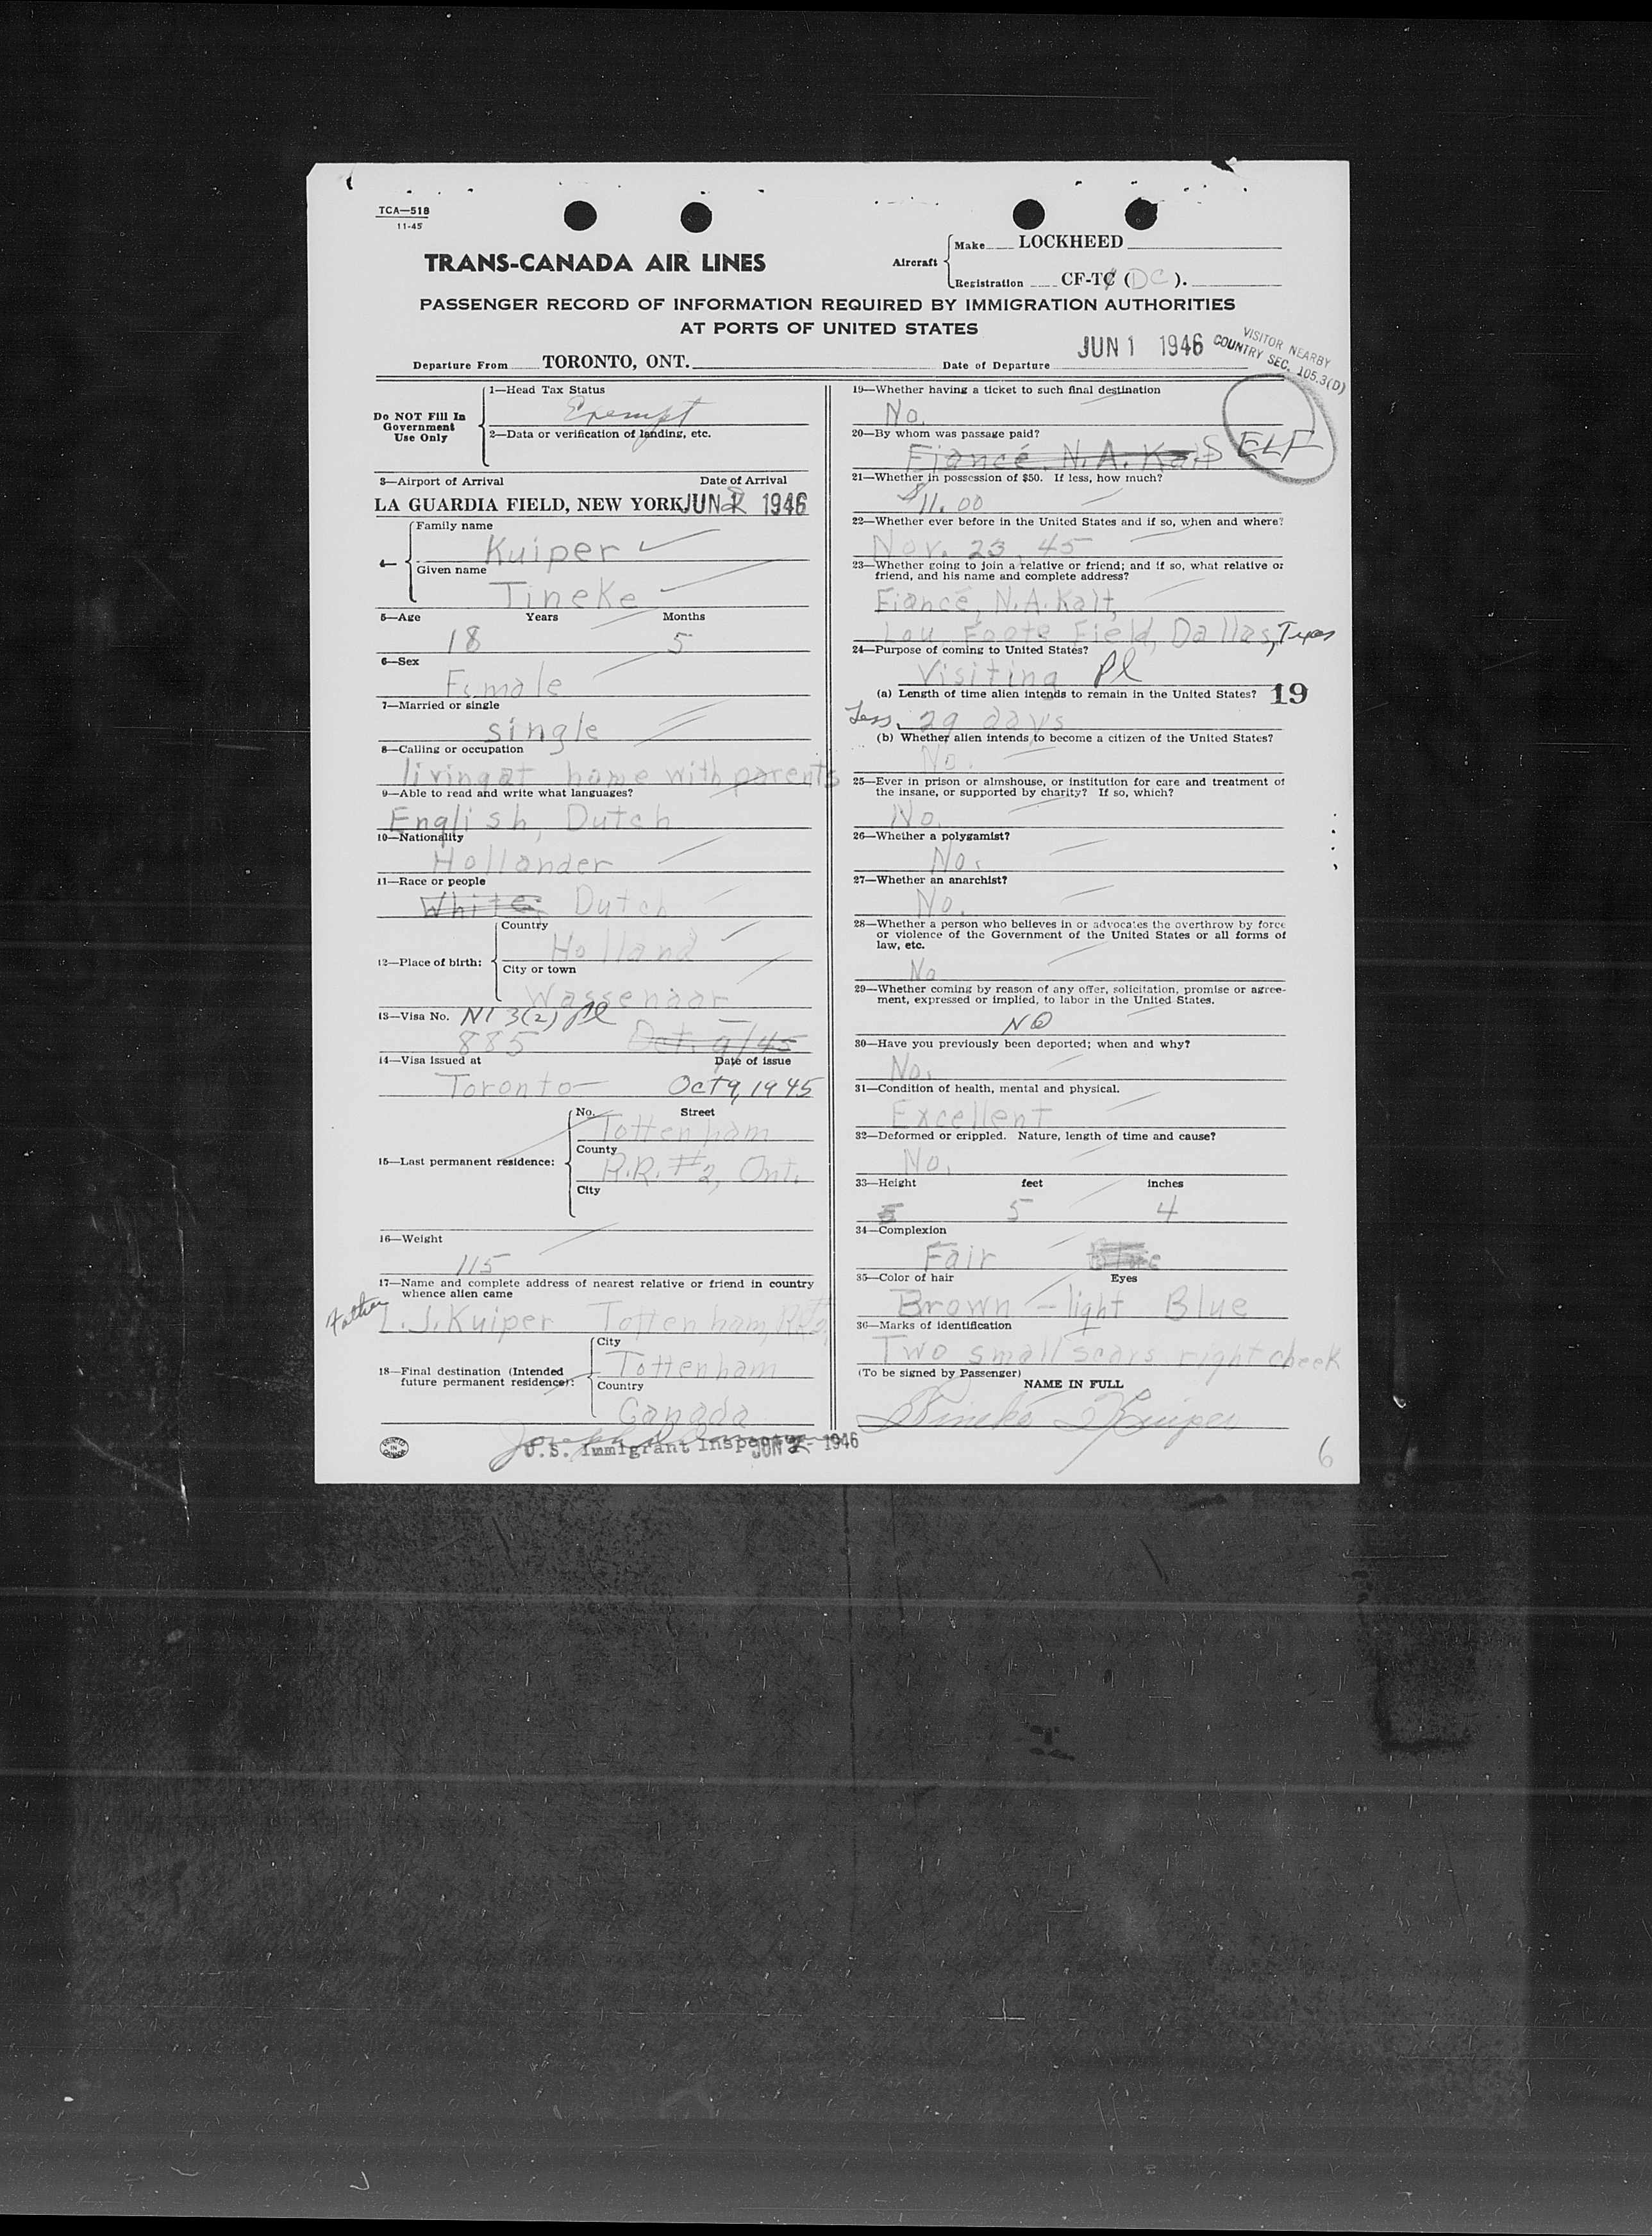 TCA—518
11-45
TRANS-CANADA AIR LINES
Aircraft
Make LOCKHEED
Registration CF-TC (DC).
PASSENGER RECORD OF INFORMATION REQUIRED BY IMMIGRATION AUTHORITIES
AT PORTS OF UNITED STATES
VISITOR NEARBY
COUNTRY SEC. 105.3(D)
Departure From TORONTO, ONT.
Date of Departure JUN 1 1946
Do NOT Fill In
Government
Use Only
1—Head Tax Status
Exempt
2—Data or verification of landing, etc.
3—Airport of Arrival Date of Arrival
LA GUARDIA FIELD, NEW YORK JUN 1946
4—
Family name
Kuiper
Given name
Tineke
5—Age Years Months
18 5
6—Sex
Female
7—Married or single
single
8—Calling or occupation
living at home with parents
9—Able to read and write what languages?
English, Dutch
10—Nationality
Hollander
11—Race or people
White Dutch
12—Place of birth:
Country
Holland
City or town
Wassenaar
13—Visa No. NI 3(2)
885 Oct. 9/45
14—Visa issued at Date of issue
Toronto Oct 9, 1945
15—Last permanent residence:
No. Street
Tottenham
County
R.R. #2, Ont.
City
16—Weight
115
17—Name and complete address of nearest relative or friend in country
whence alien came
Father
L.J. Kuiper Tottenham,
18—Final destination (Intended
future permanent residence):
City
Tottenham
Country
Canada
U.S. Immigrant Inspector JUN 1946
PRINTED
IN
CANADA
19—Whether having a ticket to such final destination
No.
20—By whom was passage paid?
Fiancé. N.A. Kalt SELF
21—Whether in possession of $50. If less, how much?
$11.00
22—Whether ever before in the United States and if so, when and where?
Nov. 23, 45
23—Whether going to join a relative or friend; and if so, what relative or
friend, and his name and complete address?
Fiancé, N.A. Kalt,
Lou Foote Field, Dallas, Texas
24—Purpose of coming to United States?
Visiting Pl
(a) Length of time alien intends to remain in the United States? 19
Less. 29 days
(b) Whether alien intends to become a citizen of the United States?
No.
25—Ever in prison or almshouse, or institution for care and treatment of
the insane, or supported by charity? If so, which?
No.
26—Whether a polygamist?
No.
27—Whether an anarchist?
No.
28—Whether a person who believes in or advocates the overthrow by force
or violence of the Government of the United States or all forms of
law, etc.
No
29—Whether coming by reason of any offer, solicitation, promise or agree-
ment, expressed or implied, to labor in the United States.
NO
30—Have you previously been deported; when and why?
No.
31—Condition of health, mental and physical.
Excellent
32—Deformed or crippled. Nature, length of time and cause?
No.
33—Height feet inches
5 4
34—Complexion
Fair
35—Color of hair Eyes
Brown - light Blue
36—Marks of identification
Two small scars right cheek
(To be signed by Passenger)
NAME IN FULL
Tineke Kuiper
6